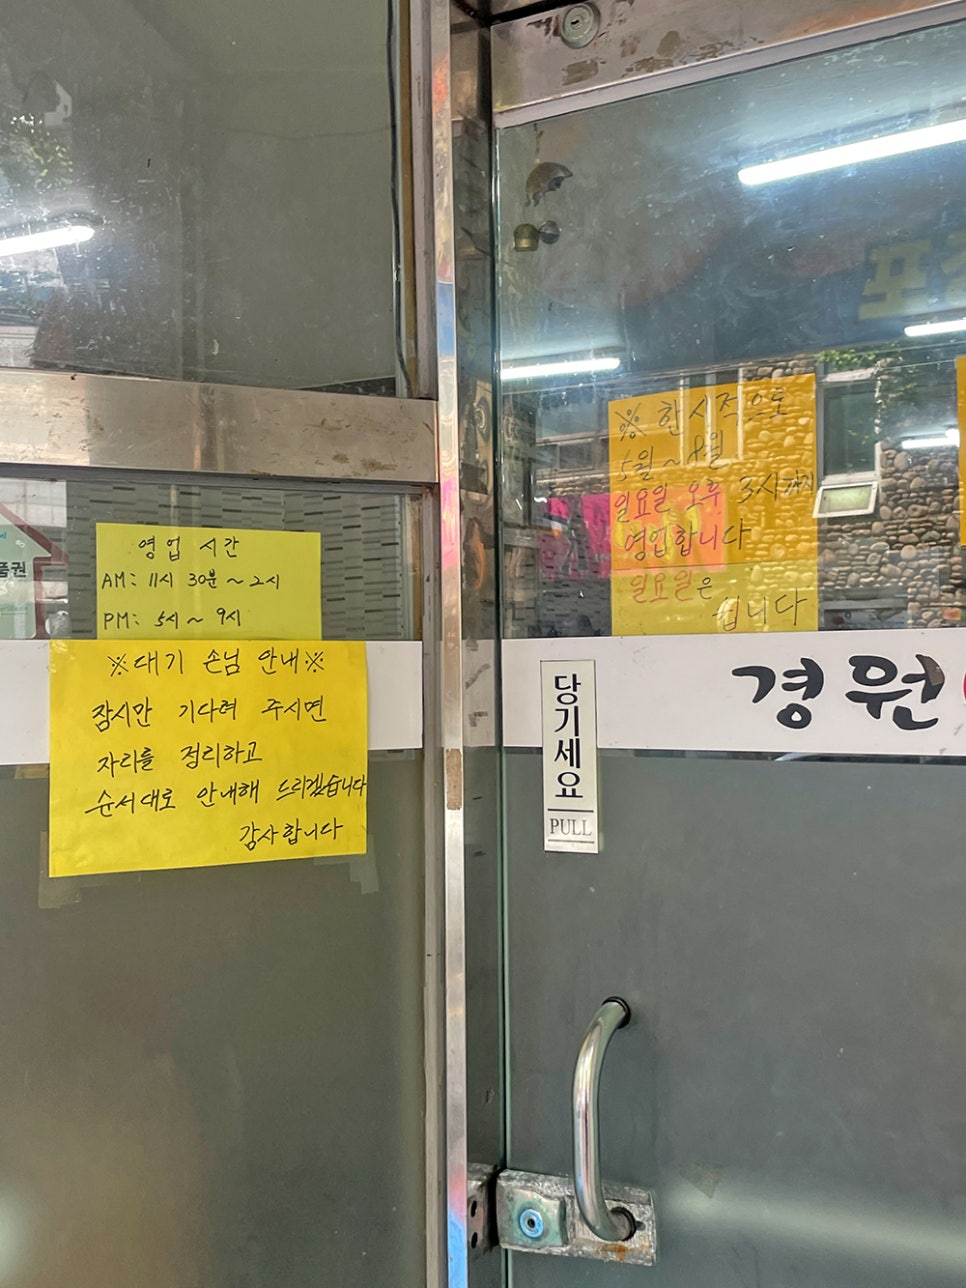 영업 시간
AM: 11시 30분 ~ 2시
PM: 5시 ~ 9시
※대기 손님 안내※
잠시만 기다려 주시면
자리를 정리하고
순서대로 안내해 드리겠습니다
감사합니다
※ 한시적으로
5월 ~ 8월
일요일 오후 3시까지
영업합니다
일요일은
쉽니다
당기세요
PULL
경원
품권
포